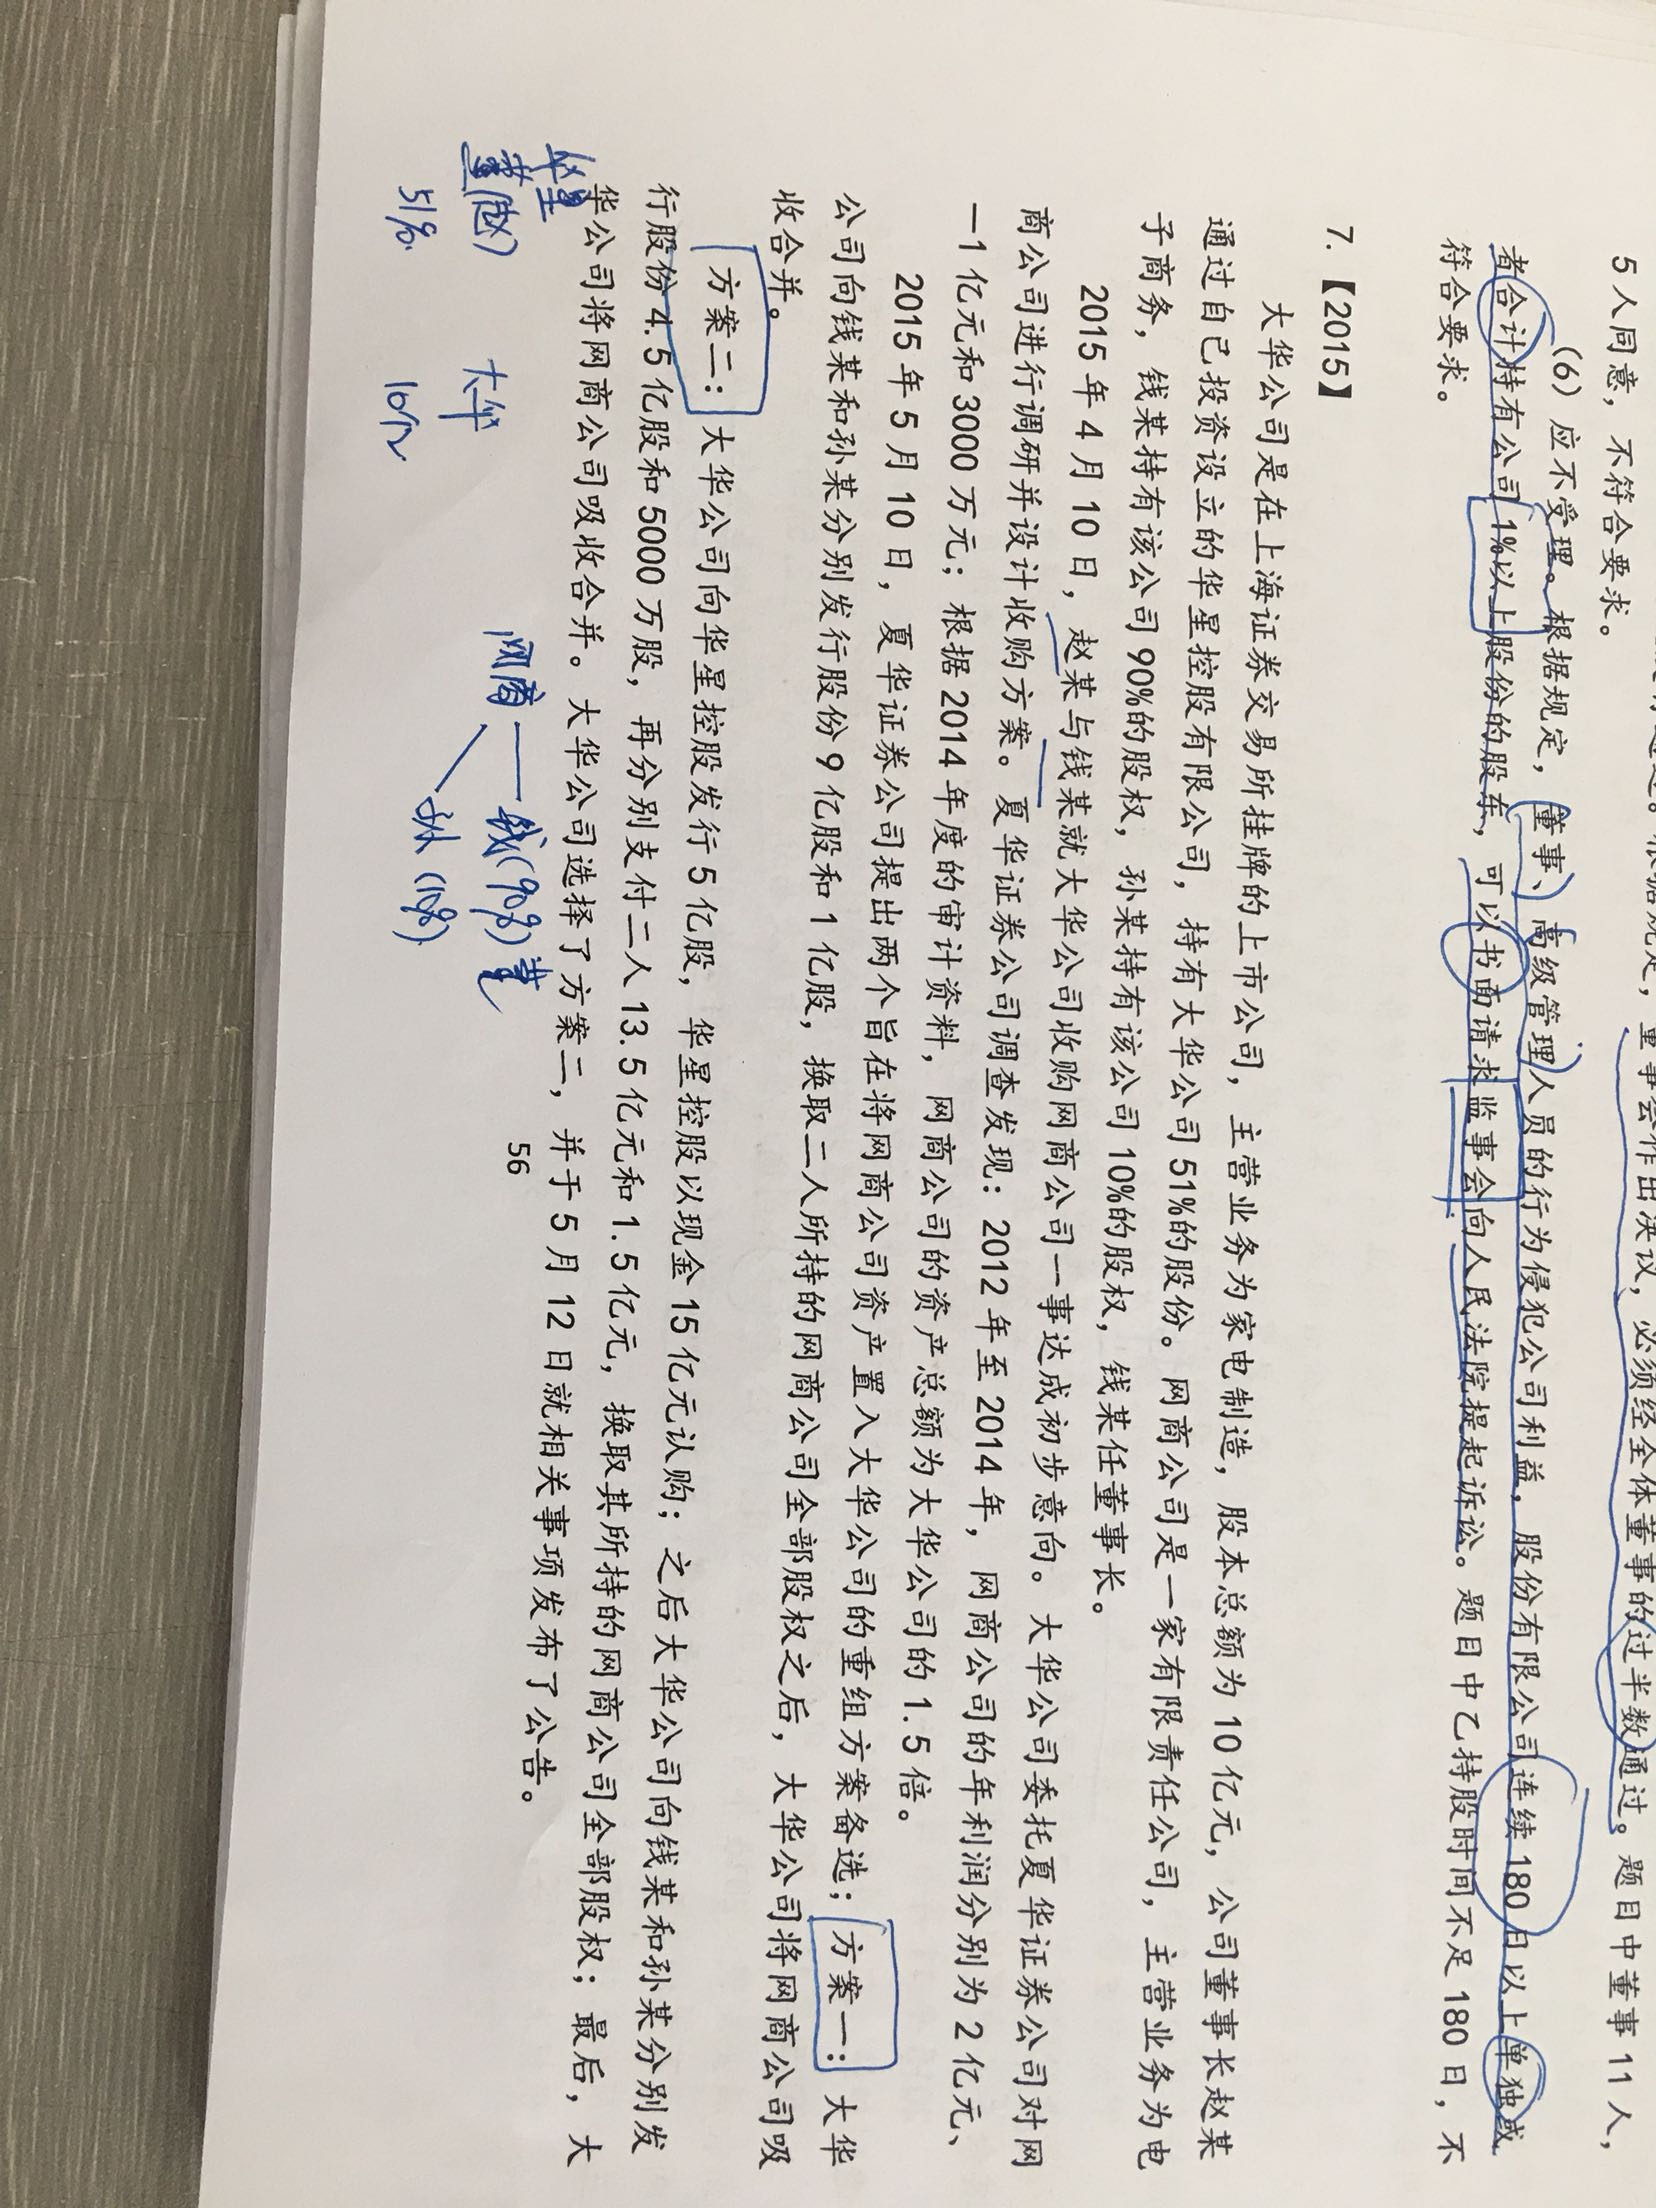 5人同意，不符合要求。
（6）应不受理。根据规定，董事、高级管理人员的行为侵犯公司利益，股份有限公司连续180日以上单独或
者合计持有公司1%以上股份的股东，可以书面请求监事会向人民法院提起诉讼。题目中乙持股时间不足180日，不
符合要求。
7.【2015】
大华公司是在上海证券交易所挂牌的上市公司，主营业务为家电制造，股本总额为10亿元，公司董事长赵某
通过自己投资设立的华星控股有限公司，持有大华公司51%的股份。网商公司是一家有限责任公司，主营业务为电
子商务，钱某持有该公司90%的股权，孙某持有该公司10%的股权，钱某任董事长。
2015年4月10日，赵某与钱某就大华公司收购网商公司一事达成初步意向。大华公司委托夏华证券公司对网
商公司进行调研并设计收购方案。夏华证券公司调查发现：2012年至2014年，网商公司的年利润分别为2亿元、
—1亿元和3000万元；根据2014年度的审计资料，网商公司的资产总额为大华公司的1.5倍。
2015年5月10日，夏华证券公司提出两个旨在将网商公司资产置入大华公司的重组方案备选；方案一：大华
公司向钱某和孙某分别发行股份9亿股和1亿股，换取二人所持的网商公司全部股权之后，大华公司将网商公司吸
收合并。
方案二：大华公司向华星控股发行5亿股，华星控股以现金15亿元认购；之后大华公司向钱某和孙某分别发
行股份4.5亿股和5000万股，再分别支付二人13.5亿元和1.5亿元，换取其所持的网商公司全部股权；最后，大
华公司将网商公司吸收合并。大华公司选择了方案二，并于5月12日就相关事项发布了公告。
华星
董(赵) 大华 网商 钱(90%)董
51% 10亿 孙(10%)
56